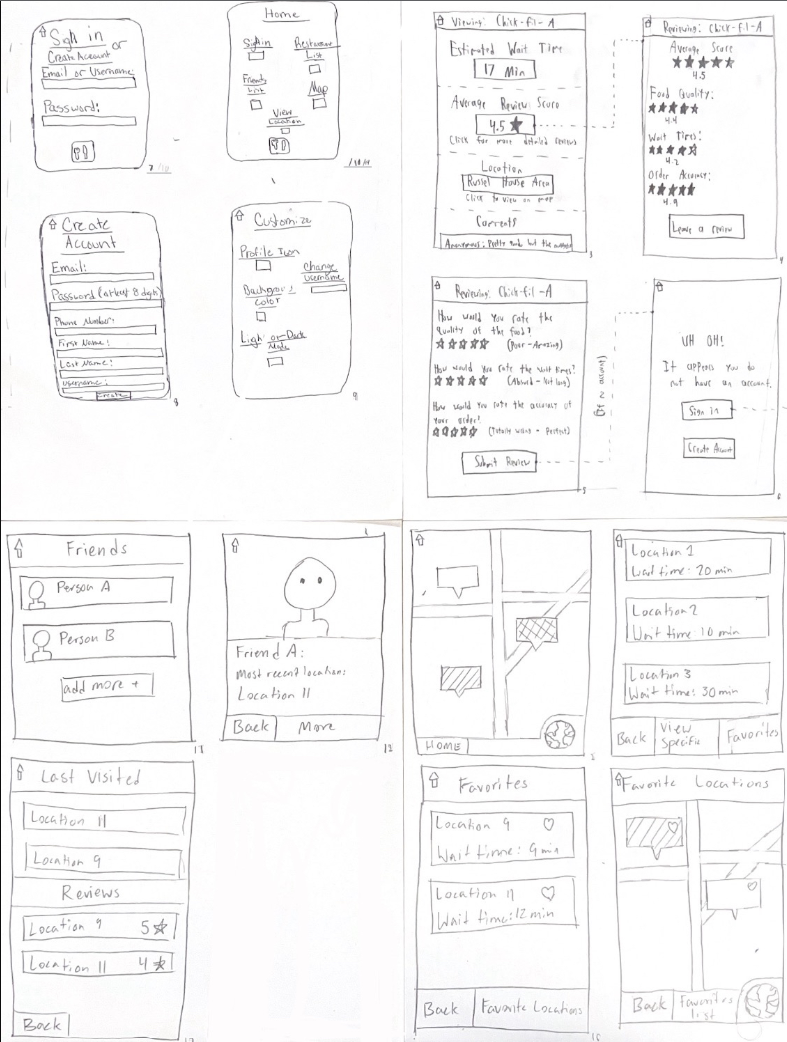 Sign in or
Create Account
Email or Username:
Password:
Home
Sign in
Restaurant
List
Friends
List
Map
View
Location
Create
Account
Email:
Password (at least 8 digits)
Phone Number:
First Name:
Last Name:
Username:
Create
8
Customize
Profile Icon
Change
Username
Background
color
Light or Dark
Mode
9
Viewing: Chick-fil-A
Estimated Wait Time
17 Min
Average Review Score
4.5 ★
Click for more detailed reviews
Location
Russel House Area
Click to view on map
Anonymous: Pretty
3
Reviewing: Chick-fil-A
Average Score
4.5
Food Quality:
4.4
Wait Times:
4.2
Order Accuracy:
4.9
Leave a review
4
Reviewing: Chick-fil-A
How would you rate the
quality of the food?
(Poor - Amazing)
How would you rate the wait times?
(Absurd - Not long)
How would you rate the accuracy of
your order?
(Totally wrong - Perfect)
Submit Review
5
UH OH!
It appears you do
not have an account.
Sign in
Create Account
6
Friends
Person A
Person B
add more +
Friend A:
Most recent location:
Location 11
Back
More
12
HOME
Location 1
Wait time: 20 min
Location 2
Wait time 10 min
Location 3
Wait time: 30 min
Back
View
Specific
Favorites
Last Visited
Location 11
Location 9
Reviews
Location 9 5 ★
Location 11 4 ★
Back
Favorites
Location 9 ♡
Wait time: 9 min
Location 11 ♡
Wait time: 12 min
Back
Favorite Locations
Favorite Locations
Back
Favorites
list